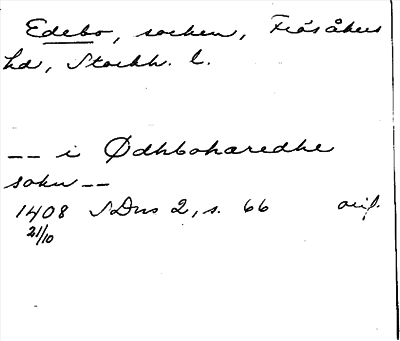 Edebo, socken, Frösåkers
hd, Stockh. l.
-- i Ødhboharedhe
sokn --
1408 SDns 2, s. 66 orig.
21/10